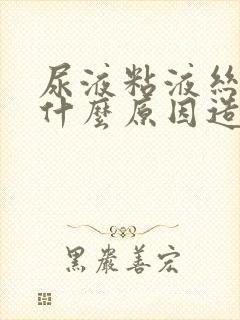 尿液粘液絲
什麼原因造
黑嚴善宏